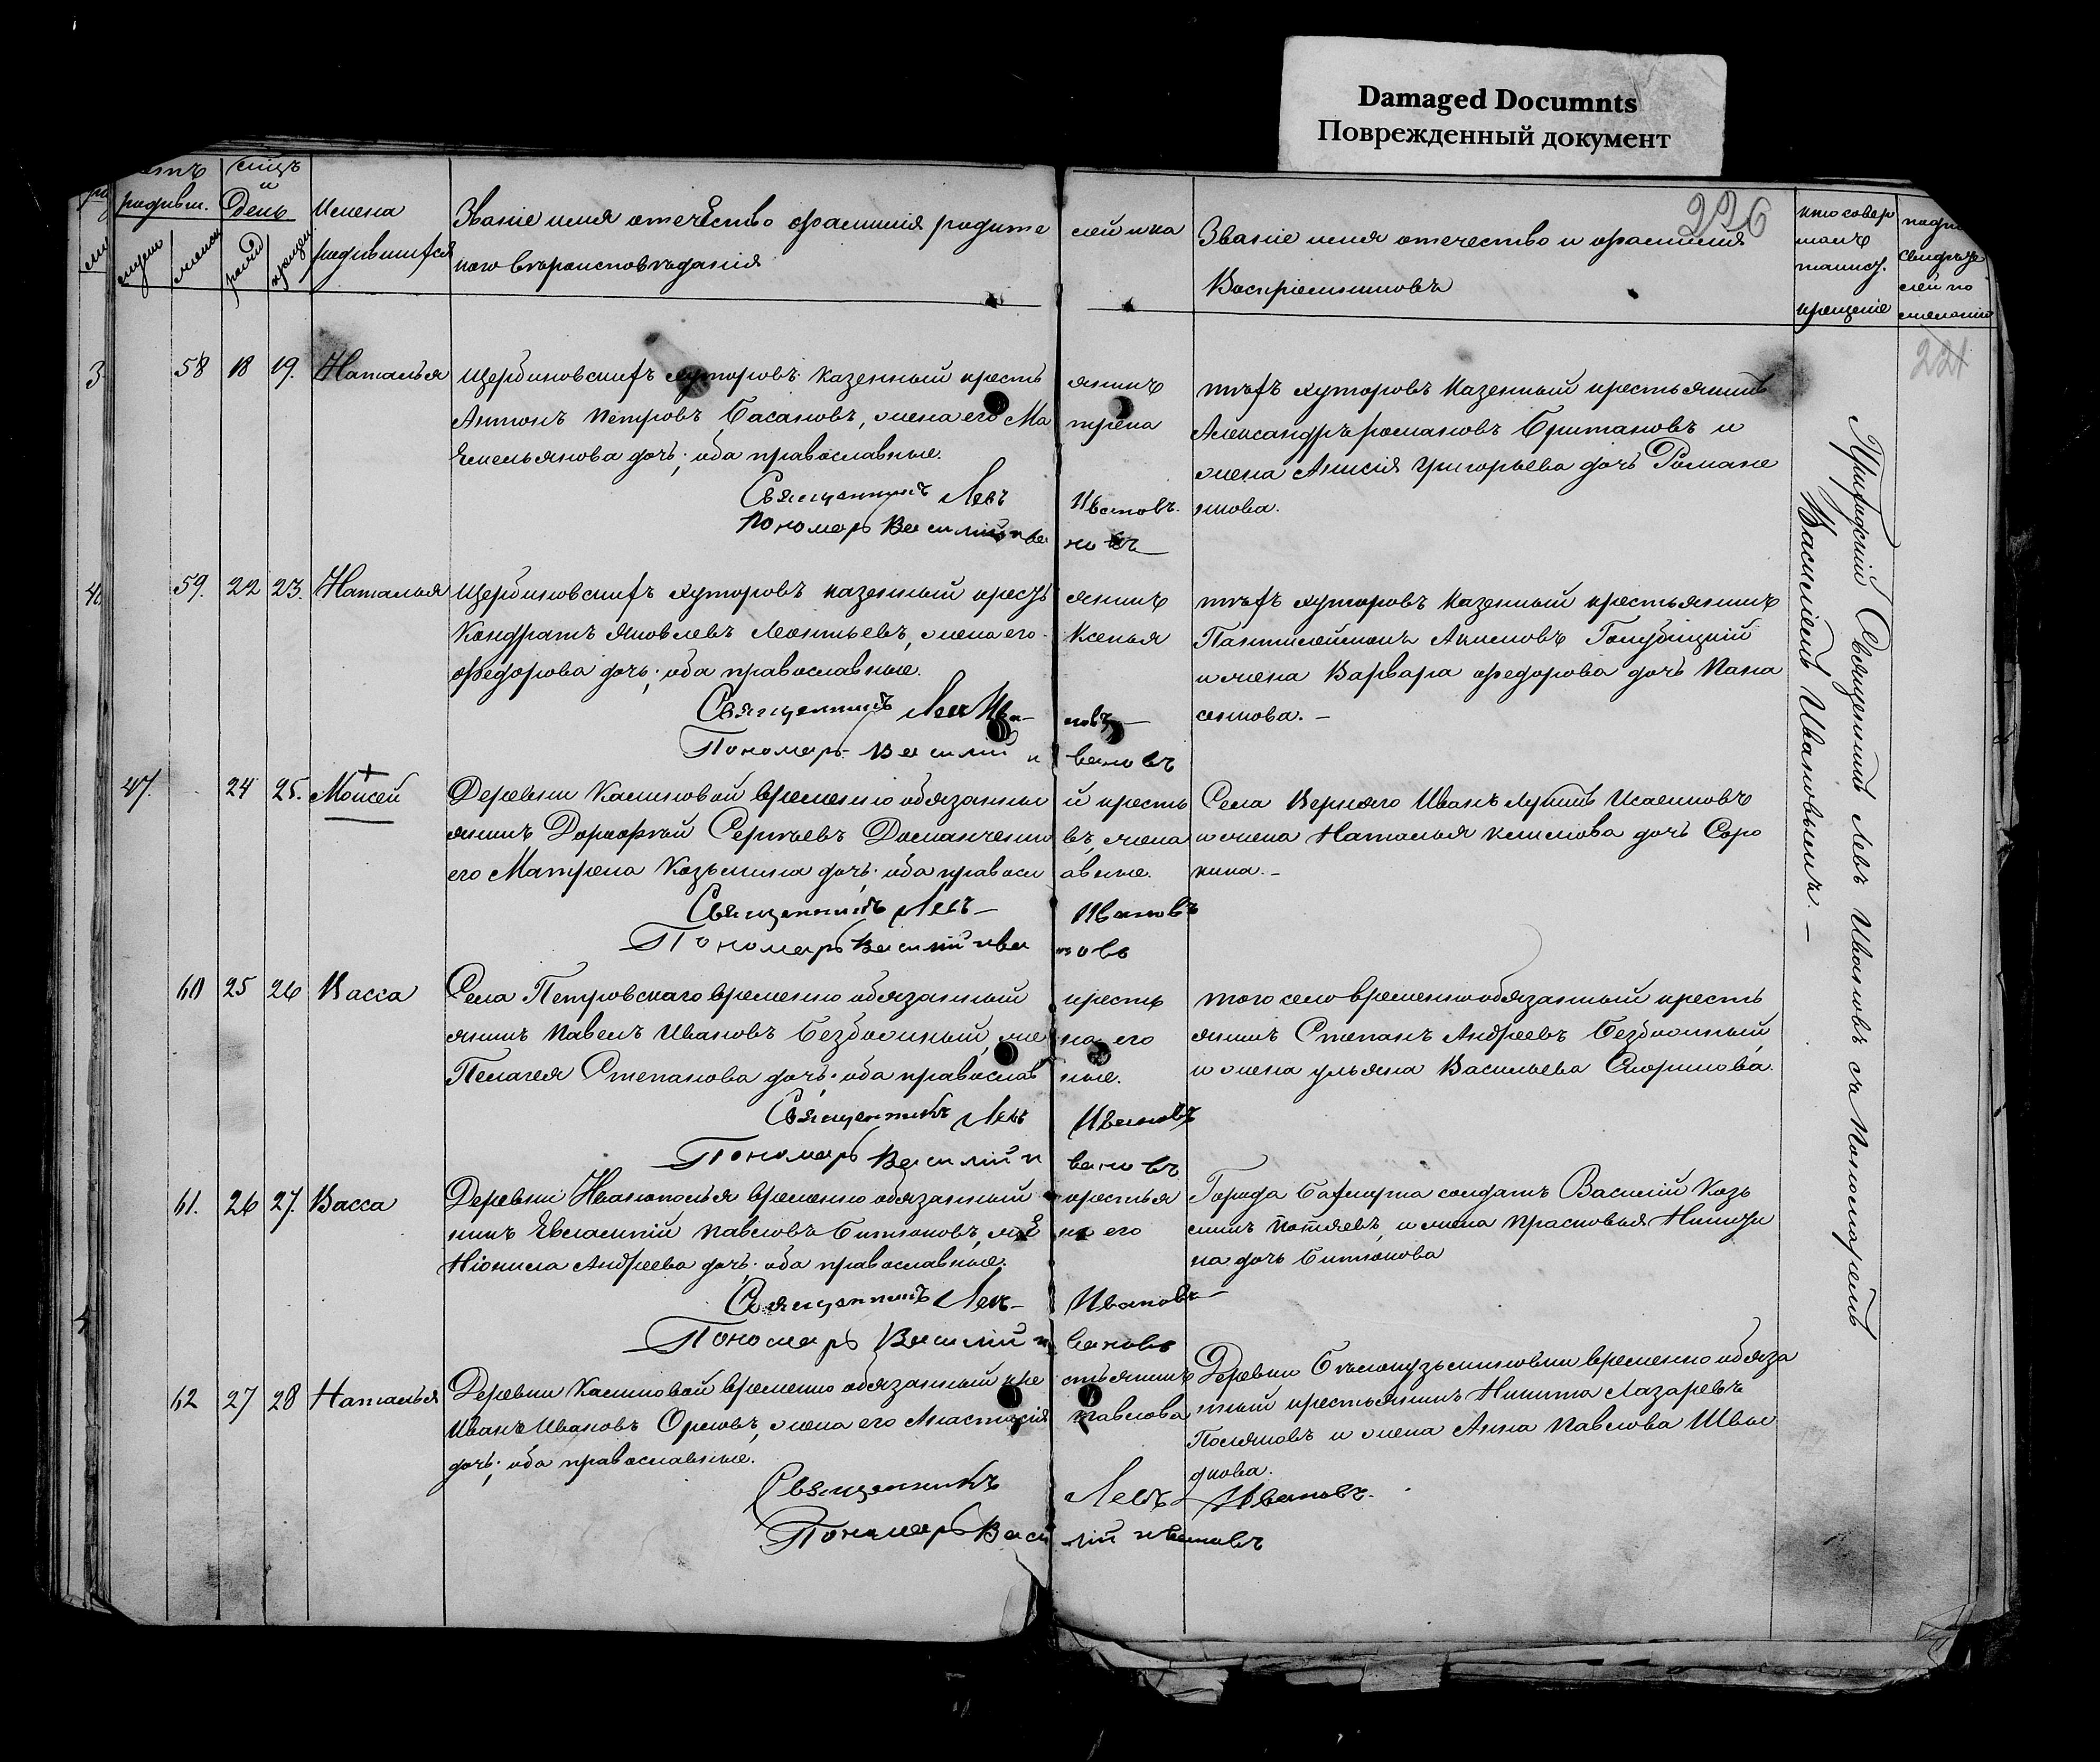 Damaged Documnts
Поврежденный документ
226
221
родивш.
День
Имена
родившихся
Званіе имя отечество фамилія родите лей и ка
кого вѣроисповѣданія
Званіе имя отечество и фамилія
Воспріемниковъ
кто совер
шалъ
таинст.
крещеніе
3 58 18 19. Наталья
Щербиновскихъ хуторовъ казенный кресть янинъ
Антонъ Петровъ Басановъ, жена его Ма трена
Емельянова дочь; оба православные.
Священникъ Левъ Ивановъ.
Пономарь Василій Ива новъ
тѣхъ хуторовъ казенный крестьянинъ
Александръ романовъ Британовъ и
жена Анисія григорьева дочь Романе
нкова.
59. 22 23. Наталья
Щербиновскихъ хуторовъ казенный кресть янинъ
Кондратъ яковлевъ Леонтьевъ, жена его Ксенья
федорова дочь; оба православные.
Священникъ Левъ Ива- новъ
Пономарь Василій и вановъ
тѣхъ хуторовъ казенный крестьянинъ
Пантилеймонъ Акимовъ Голубицкій
и жена Варвара федорова дочь Пана
сенкова. –
47. 24 25. Моисей
Деревни Калиновой временно обязанны й кресть
янинъ Дорофѣй Сергѣевъ Доманченко въ, жена
его Матрена Козьмина дочь; оба правосл авные.
Священникъ Левъ – Ивановъ
Пономарь Василій Ива новъ
Села Верхняго Иванъ Лукинъ Исаенковъ
и жена Наталья климова дочь Соро
кина. –
60 25 26 Васса
Села Петровскаго временно обязанный кресть
янинъ Павелъ Ивановъ Безбожный, же на его
Пелагея Степанова дочь; оба православ ные.
Священникъ Левъ Ивановъ
Пономарь Василій и вановъ
того село временнообязанный кресть
янинъ Степанъ Андреевъ Безбожный,
и жена ульяна Васильева Скорикова.
61. 26 27. Васса
Деревни Иванополья временно обязанный крестья
нинъ Евлампій Павловъ Битюковъ, же на его
Ніонила Андреева дочь; оба православные.
Священникъ Левъ – Ивановъ –
Пономарь Василій и вановъ
Города Бахмута солдатъ Василій Козь
минъ Потяевъ, и жена Прасковья Никити
на дочь Битюкова
62 27 28 Наталья
Деревни Калиновой временно обязанный кре стьянинъ
Иванъ Ивановъ Орловъ, жена его Анастасія Павлова
дочь; оба православные.
Священникъ Левъ Ивановъ.
Пономарь Васи лій Ивановъ
Деревни Бѣлокузьминовки временно обяза
нный крестьянинъ Никита Лазаревъ
Поляковъ и жена Анна Павлова Швы
дкова.
Приходскій Священникъ Левъ Ивановъ съ Пономаремъ
Василіемъ Ивановымъ. –